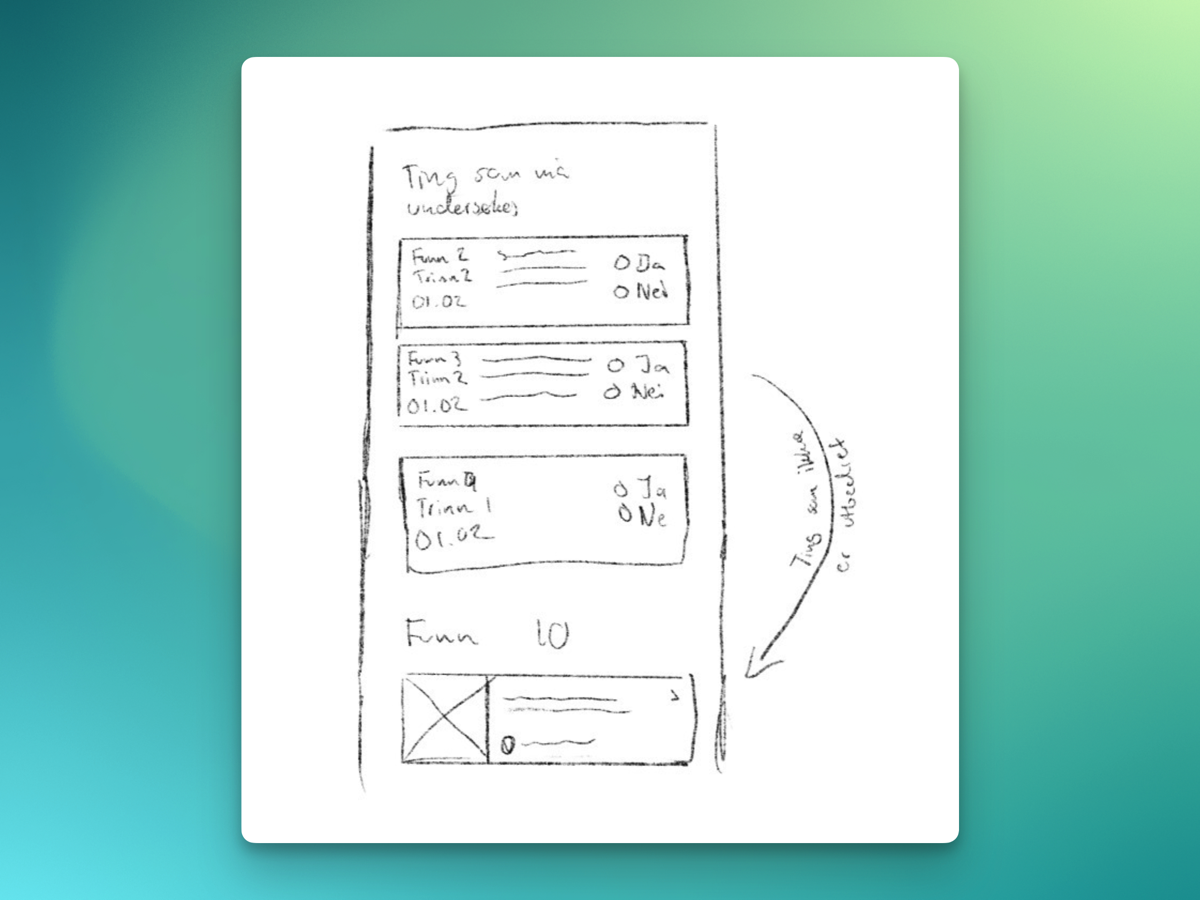 Ting som må
undersøkes
Funn 2
Trinn 2
01.02
Ja
Nei
Funn 3
Trinn 2
01.02
Ja
Nei
Funn
Trinn 1
01.02
Ja
Ne
Funn 10
Ting som ikke
er utbedret